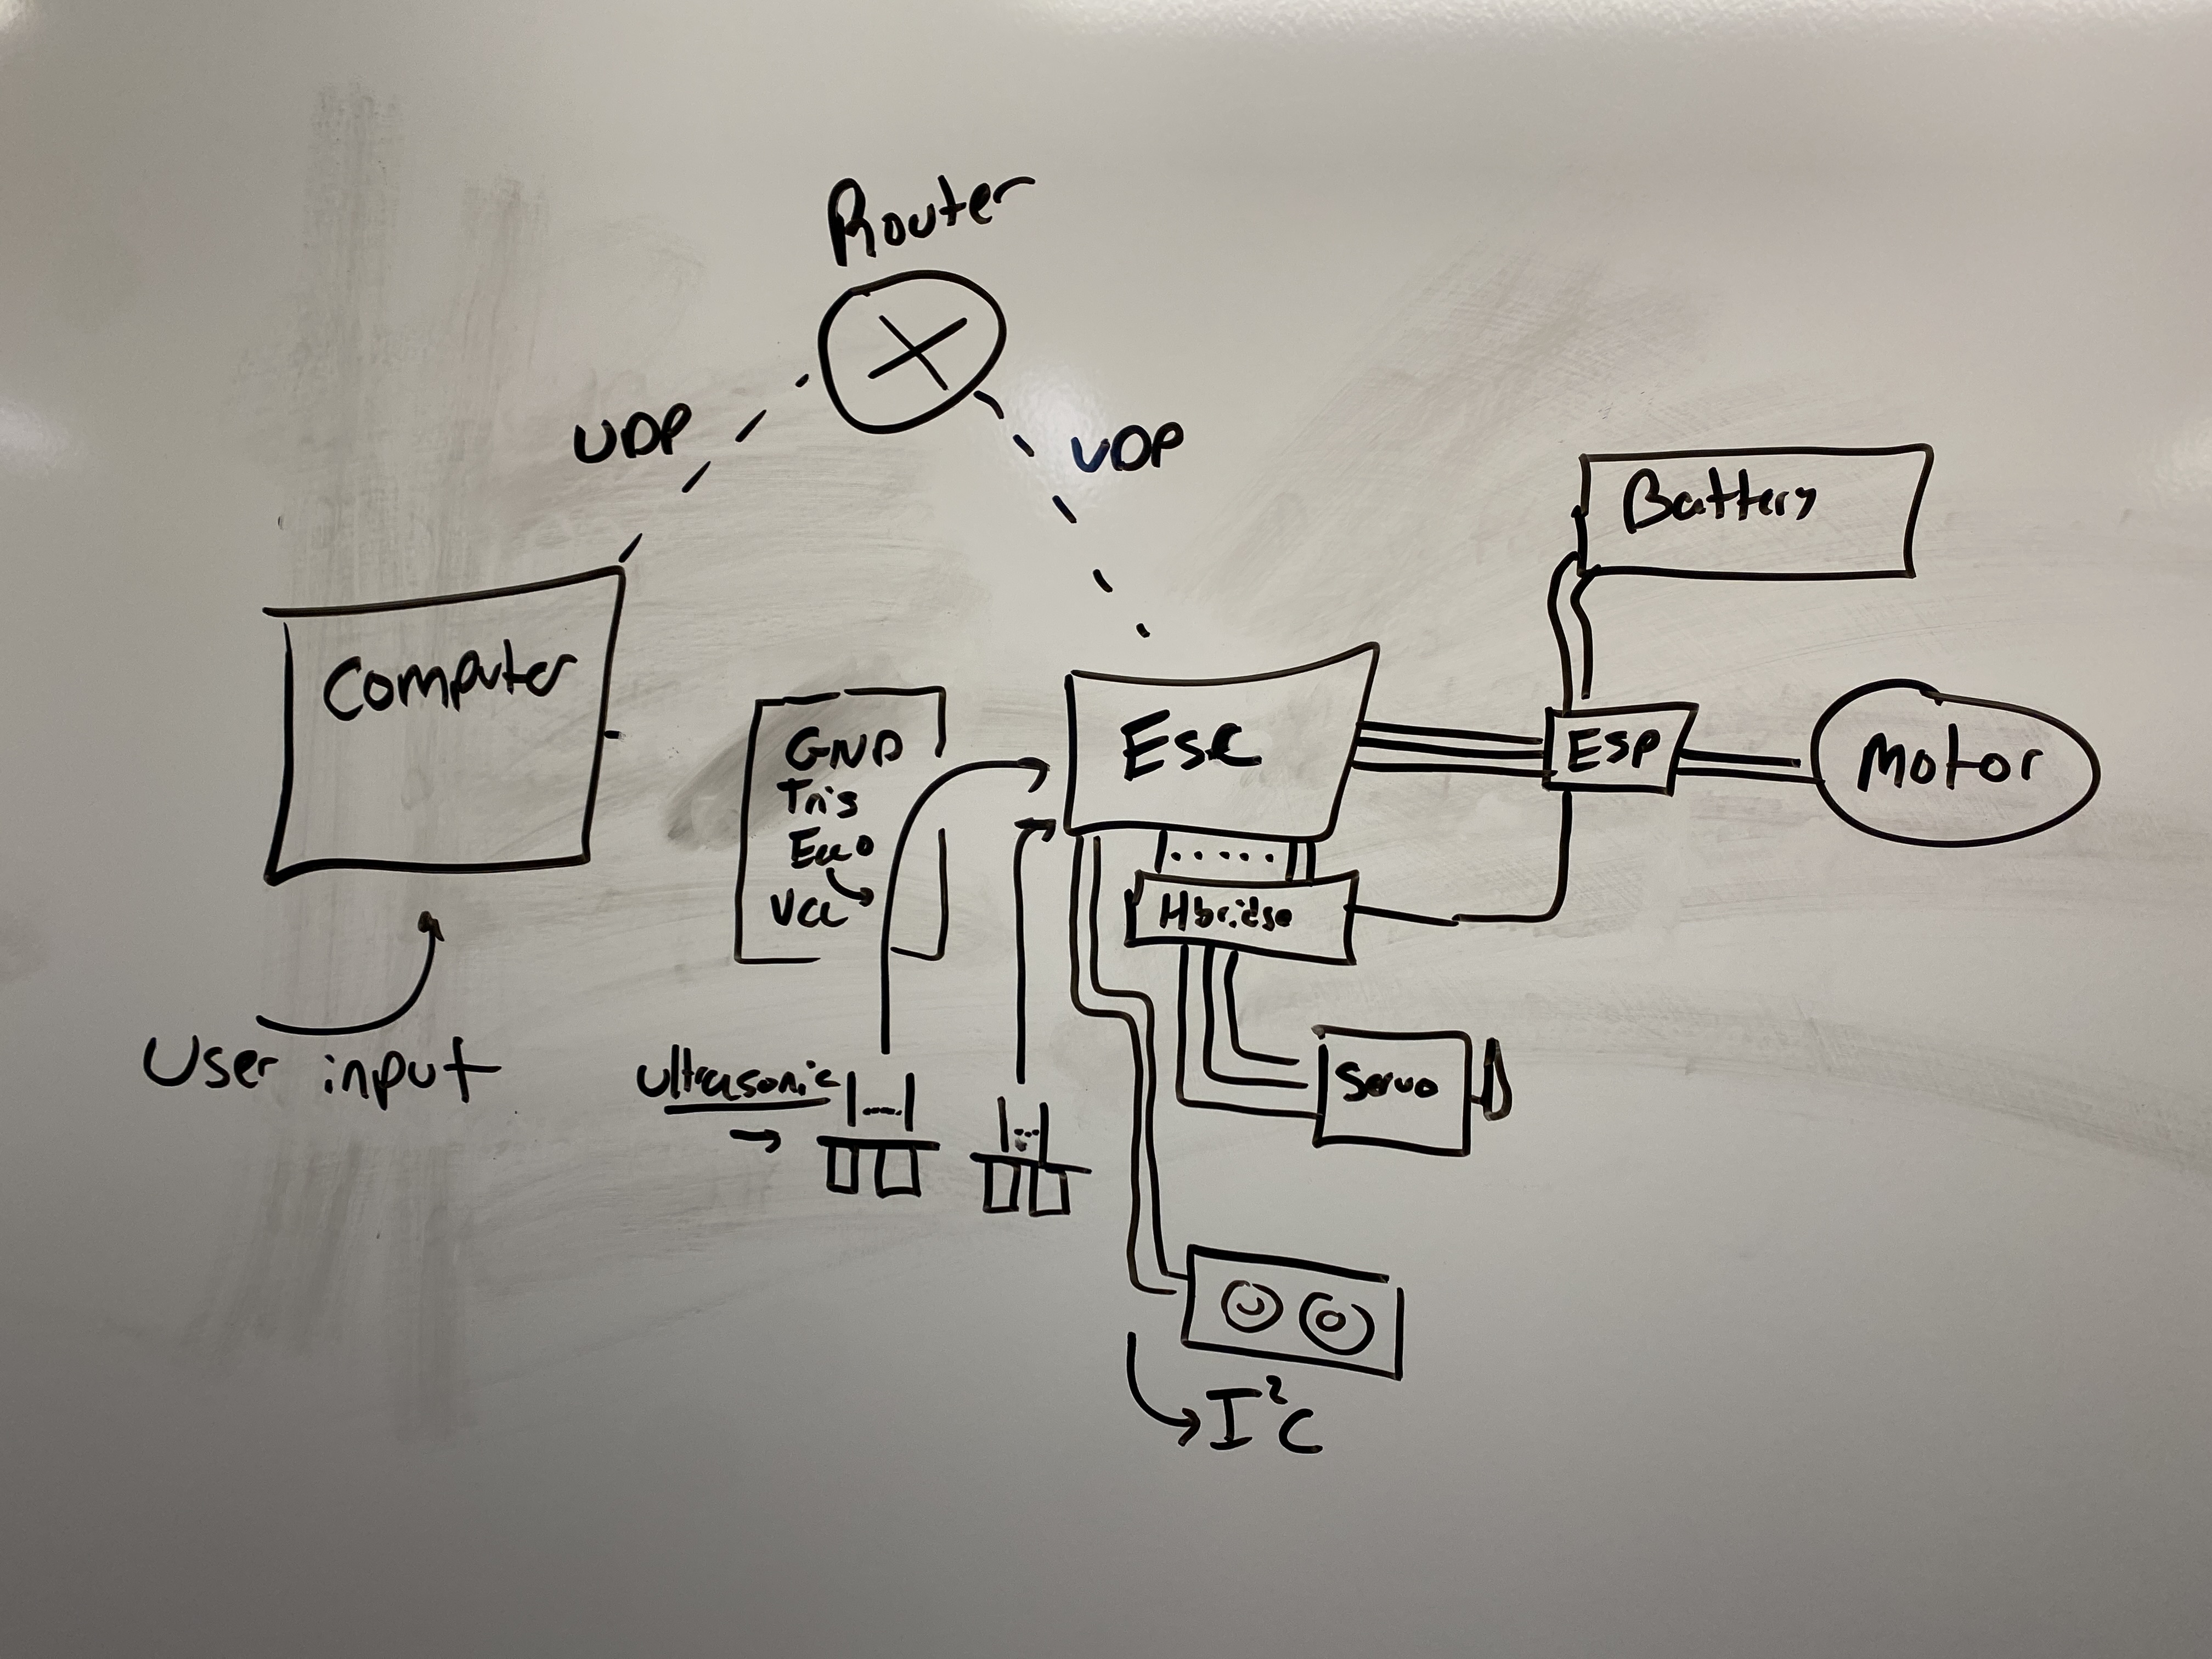 Router
UDP
UDP
Battery
Computer
GND
Trig
Echo
Vcc
ESC
ESP
Motor
Hbridge
User input
Ultrasonic
Servo
I²C